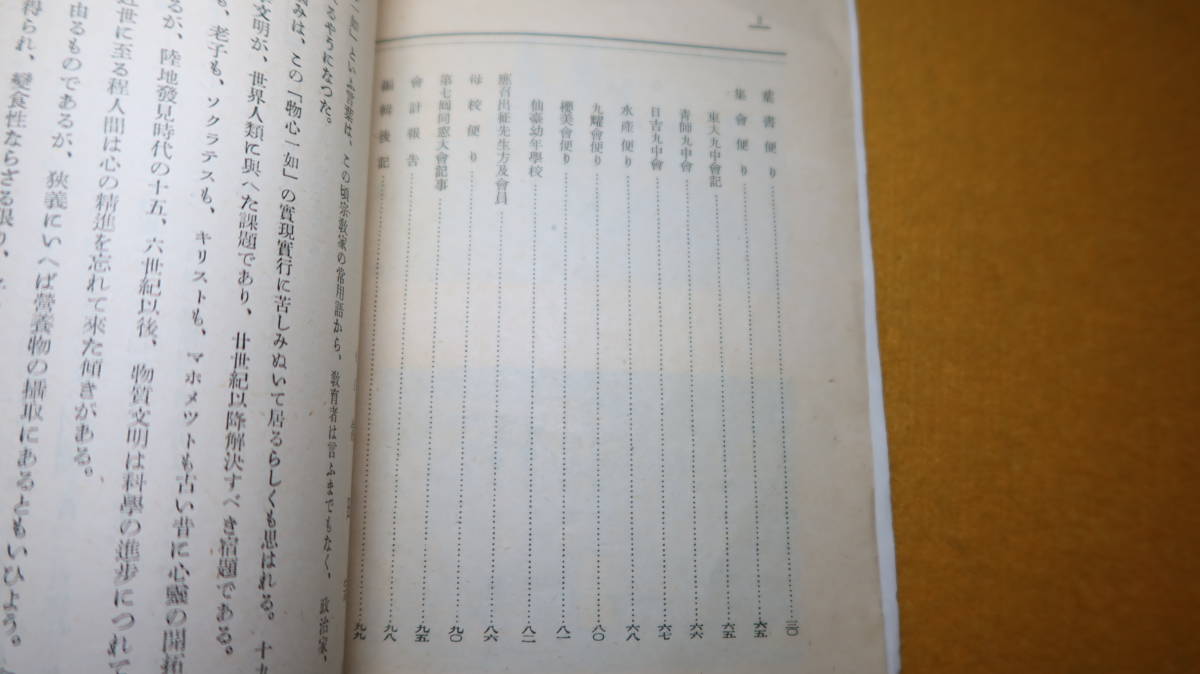 2
葉書便り…三〇
集會便り…六五
東大九中會記…六五
青師九中會…六六
日吉九中會…六七
水產便り…六八
九曜會便り…八〇
櫻美會便り…八一
仙臺幼年學校…八二
應召出征先生方及會員…八六
母校便り…九〇
第七回同窓大會記事…九五
會計報告…九八
編輯後記…九九
一如」といふ言葉は、この頃宗敎家の常用語から、敎育者は言ふまでもなく、政治家、
るやうになつた。
みは、この「物心一如」の實現實行に苦しみぬいて居るらしくも思はれる。十九
文明が、世界人類に與へた課題であり、廿世紀以降解決すべき宿題である。
も、老子も、ソクラテスも、キリストも、マホメツトも古い昔に心靈の開拓
るが、陸地發見時代の十五、六世紀以後、物質文明は科學の進步につれて
近世に至る程人間は心の精進を忘れて來た傾きがある。
由るものであるが、狹義にいへば營養物の攝取にあるともいひよう。
得られ、變食性ならざる限り、